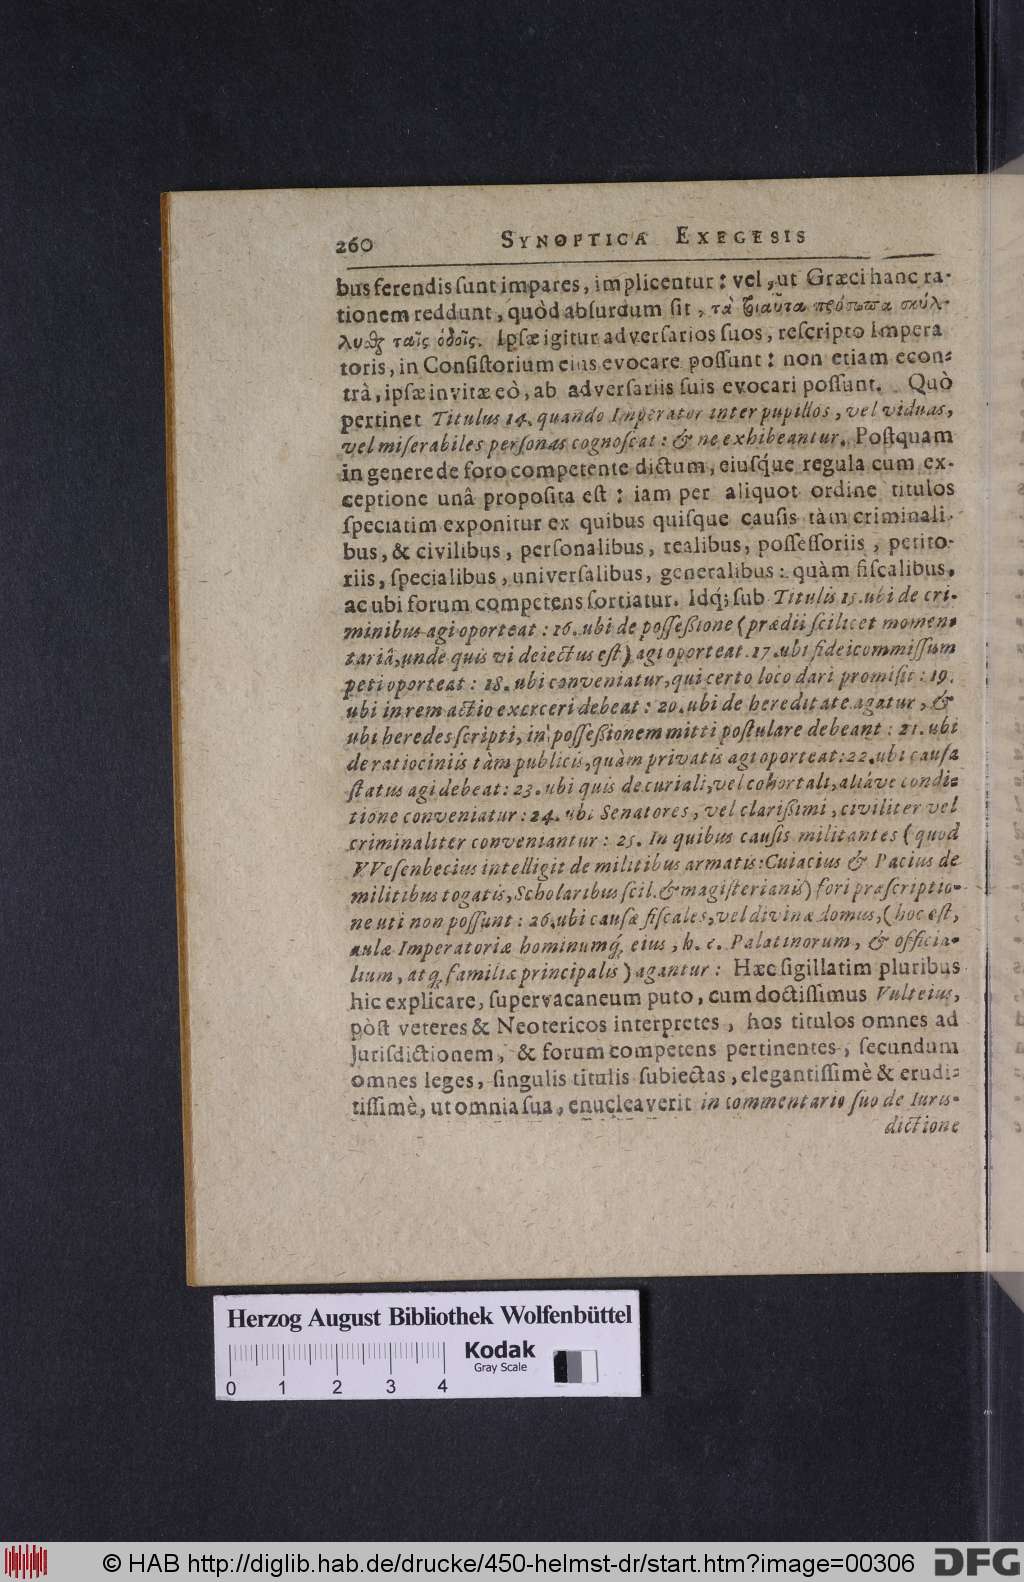 260 SYNOPTICA EXEGESIS
bus ferendis ſunt impares, implicentur: vel, ut Græci hanc ra-
tionem reddunt, quòd abſurdum ſit, τὰ τοιαῦτα πρόσωπα σκύλ-
λυθζ ταῖς ὁδοῖς. Ipſæ igitur adverſarios ſuos, reſcripto Impera
toris, in Conſiſtorium eius evocare poſſunt: non etiam econ-
trà, ipſæ invitæ eò, ab adverſariis ſuis evocari poſſunt. Quò
pertinet Titulus 14. quando Imperator inter pupillos, vel viduas,
vel miſerabiles perſonas cognoſcat: & ne exhibeantur. Poſtquam
in genere de foro competente dictum, eiusq́ue regula cum ex-
ceptione unâ propoſita eſt: iam per aliquot ordine titulos
ſpeciatim exponitur ex quibus quiſque cauſis tàm criminali-
bus, & civilibus, perſonalibus, realibus, poſſeſſoriis, petito-
riis, ſpecialibus, univerſalibus, generalibus: quàm fiſcalibus,
ac ubi forum competens ſortiatur. Idq́; ſub Titulis 15. ubi de cri-
minibus agi oporteat: 16. ubi de poſſeßione (prædii ſcilicet momen-
tariâ, unde quis vi deiectus eſt) agi oporteat. 17. ubi fideicommiſſum
peti oporteat: 18. ubi conveniatur, qui certo loco dari promiſit: 19.
ubi in rem actio exerceri debeat: 20. ubi de hereditate agatur, &
ubi heredes ſcripti, in poſſeßionem mitti poſtulare debeant: 21. ubi
de ratiociniis tàm publicis, quàm privatis agi oporteat: 22. ubi cauſa
ſtatus agi debeat: 23. ubi quis de curiali, vel cohortali, aliáve condi-
tione conveniatur: 24. ubi Senatores, vel clarißimi, civiliter vel
criminaliter conveniantur: 25. In quibus cauſis militantes (quod
VVeſenbecius intelligit de militibus armatis: Cuiacius & Pacius de
militibus togatis, Scholaribus ſcil. & magiſterianis) fori præſcriptio-
ne uti non poſſunt: 26. ubi cauſæ fiſcales, vel divinæ domus, (hoc eſt,
aulæ Imperatoriæ hominumq́; eius, h. e. Palatinorum, & officia-
lium, atq; familiæ principalis) agantur: Hæc ſigillatim pluribus
hic explicare, ſupervacaneum puto, cum doctiſſimus Vulteius,
pòſt veteres & Neotericos interpretes, hos titulos omnes ad
Jurisdictionem, & forum competens pertinentes, ſecundum
omnes leges, ſingulis titulis ſubiectas, elegantiſſimè & erudi-
tiſſimè, ut omnia ſua, enucleaverit in commentario ſuo de Iuris-
dictione
Herzog August Bibliothek Wolfenbüttel
Kodak
Gray Scale
0 1 2 3 4
© HAB http://diglib.hab.de/drucke/450-helmst-dr/start.htm?image=00306
DFG